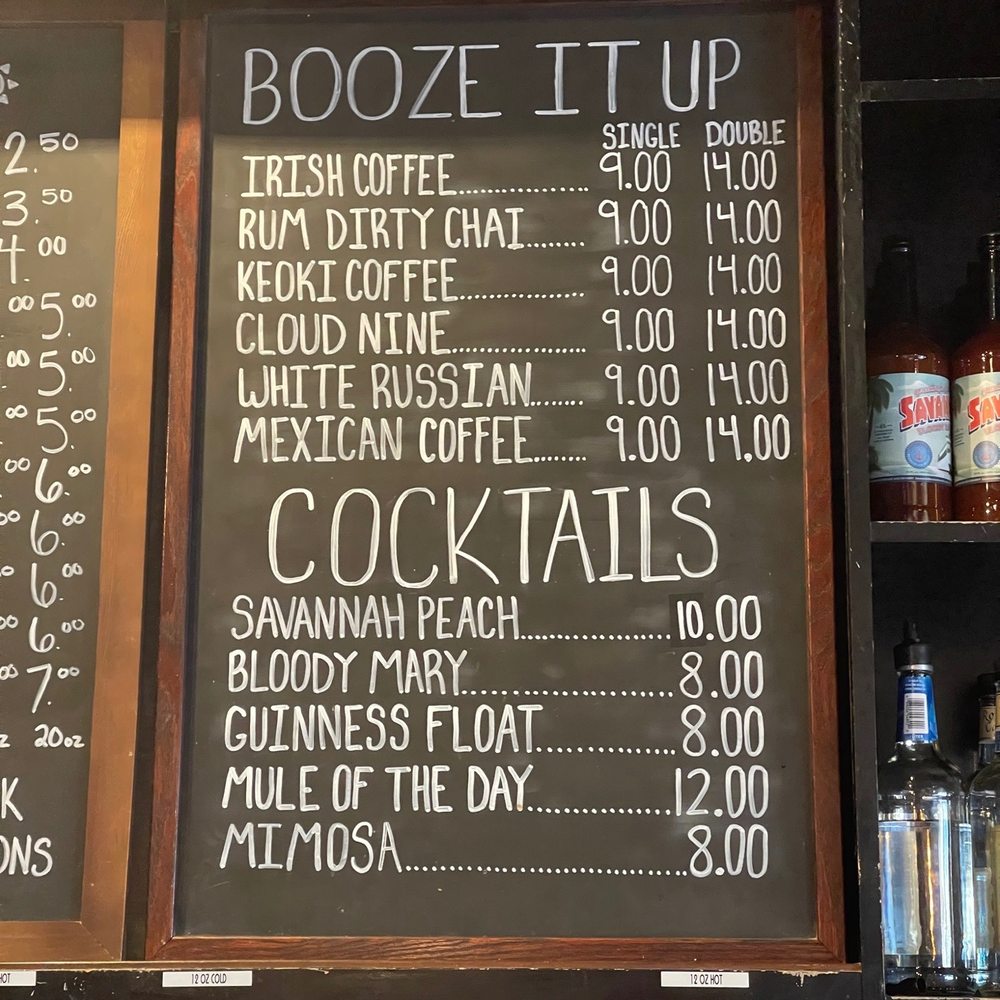 BOOZE IT UP
SINGLE DOUBLE
IRISH COFFEE................ 9.00 14.00
RUM DIRTY CHAI........ 9.00 14.00
KEOKI COFFEE............... 9.00 14.00
CLOUD NINE................ 9.00 14.00
WHITE RUSSIAN....... 9.00 14.00
MEXICAN COFFEE....... 9.00 14.00
COCKTAILS
SAVANNAH PEACH..................10.00
BLOODY MARY........................8.00
GUINNESS FLOAT................8.00
MULE OF THE DAY................12.00
MIMOSA................................8.00
2.50
3.50
4.00
00 5.00
00 5.00
00 5.00
00 6.00
00 6.00
6.00
00 6.00
00 7.00
20oz
HOT
12 OZ COLD
12 OZ HOT